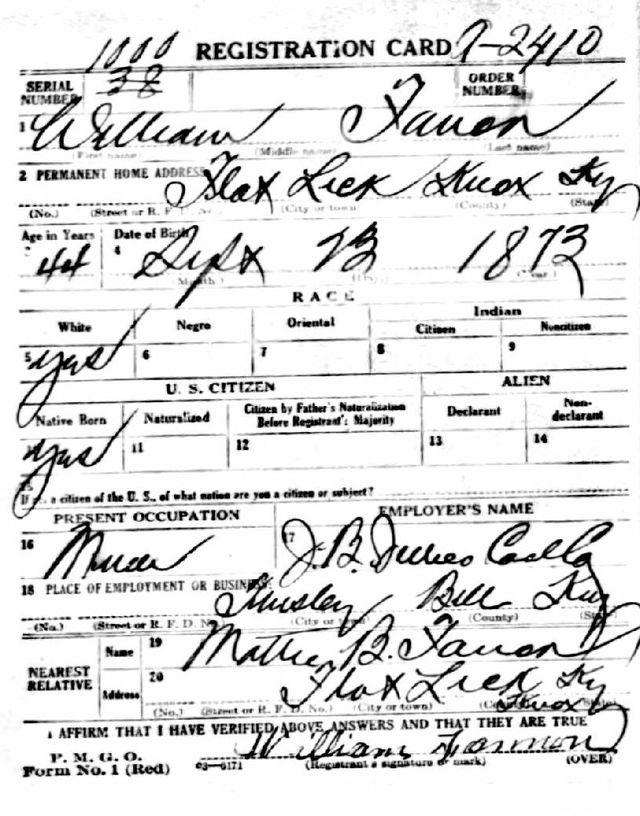 1000 REGISTRATION CARD A-2410
SERIAL NUMBER 38 ORDER NUMBER
1 William Fauon
(First name) (Middle name) (Last name)
2 PERMANENT HOME ADDRESS Flax Lick Knox Ky
(No.) (Street or R. F. D. No.) (City or town) (County) (State)
Age in Years Date of Birth
44 4 Sept 23 1873
(Month.) (Day.) (Year.)
RACE
White Negro Oriental Indian
Citizen Noncitizen
5 yes 6 7 8 9
U. S. CITIZEN ALIEN
Native Born Naturalized Citizen by Father's Naturalization Before Registrant's Majority Declarant Non-declarant
yes 11 12 13 14
15
If not a citizen of the U. S., of what nation are you a citizen or subject?
PRESENT OCCUPATION EMPLOYER'S NAME
16 Miner 17 J. B.
18 PLACE OF EMPLOYMENT OR BUSINESS: Bell Ky
(No.) (Street or R. F. D. No.) (City or town) (County) (State)
NEAREST RELATIVE
Name 19 Mattie B. Fauon
Address 20 Flax Lick Ky
Knox
(No.) (Street or R. F. D. No.) (City or town) (County) (State)
I AFFIRM THAT I HAVE VERIFIED ABOVE ANSWERS AND THAT THEY ARE TRUE
P. M. G. O.
Form No. 1 (Red) 03—6171 William Farmon
(Registrant's signature or mark) (OVER)